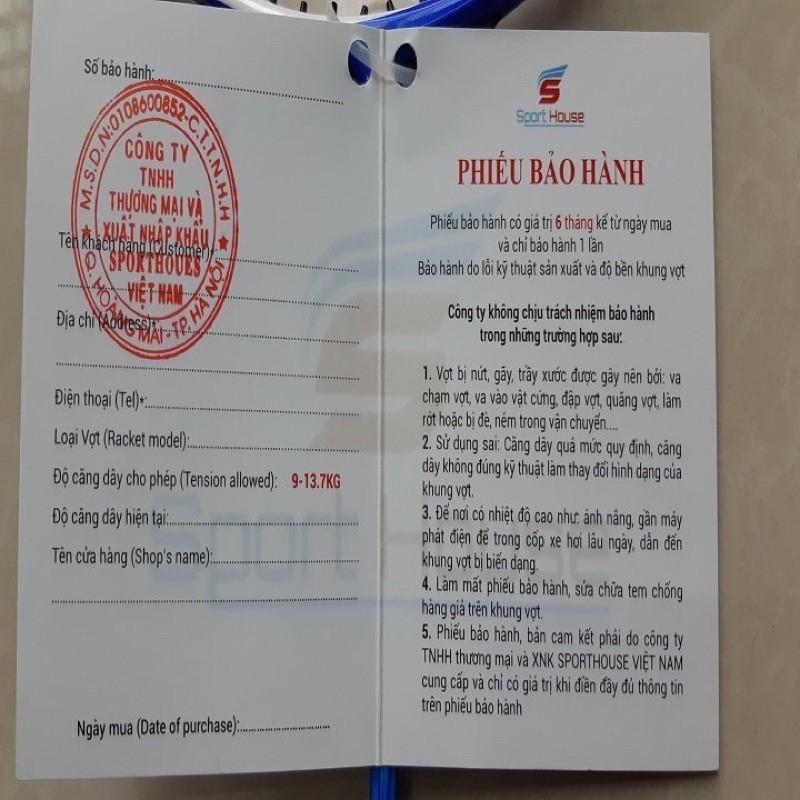 Số bảo hành:
M.S.D.N:0108600852-C.T.T.N.H.H
CÔNG TY
TNHH
THƯƠNG MẠI VÀ
XUẤT NHẬP KHẨU
SPORTHOUES
VIỆT NAM
Q. HOÀNG MAI - TP. HÀ NỘI
Tên khách hàng (Customer)*:
Địa chỉ (Address)*:
Điện thoại (Tel)*:
Loại Vợt (Racket model):
Độ căng dây cho phép (Tension allowed): 9-13.7KG
Độ căng dây hiện tại:
Tên cửa hàng (Shop's name):
Ngày mua (Date of purchase):
S
Sport House
PHIẾU BẢO HÀNH
Phiếu bảo hành có giá trị 6 tháng kể từ ngày mua
và chỉ bảo hành 1 lần
Bảo hành do lỗi kỹ thuật sản xuất và độ bền khung vợt
Công ty không chịu trách nhiệm bảo hành
trong những trường hợp sau:
1. Vợt bị nứt, gãy, trầy xước được gây nên bởi: va
chạm vợt, va vào vật cứng, đập vợt, quăng vợt, làm
rớt hoặc bị đè, ném trong vận chuyển....
2. Sử dụng sai: Căng dây quá mức quy định, căng
dây không đúng kỹ thuật làm thay đổi hình dạng của
khung vợt.
3. Để nơi có nhiệt độ cao như: ánh nắng, gần máy
phát điện để trong cốp xe hơi lâu ngày, dẫn đến
khung vợt bị biến dạng.
4. Làm mất phiếu bảo hành, sửa chữa tem chống
hàng giả trên khung vợt.
5. Phiếu bảo hành, bản cam kết phải do công ty
TNHH thương mại và XNK SPORTHOUSE VIỆT NAM
cung cấp và chỉ có giá trị khi điền đầy đủ thông tin
trên phiếu bảo hành
Sport House